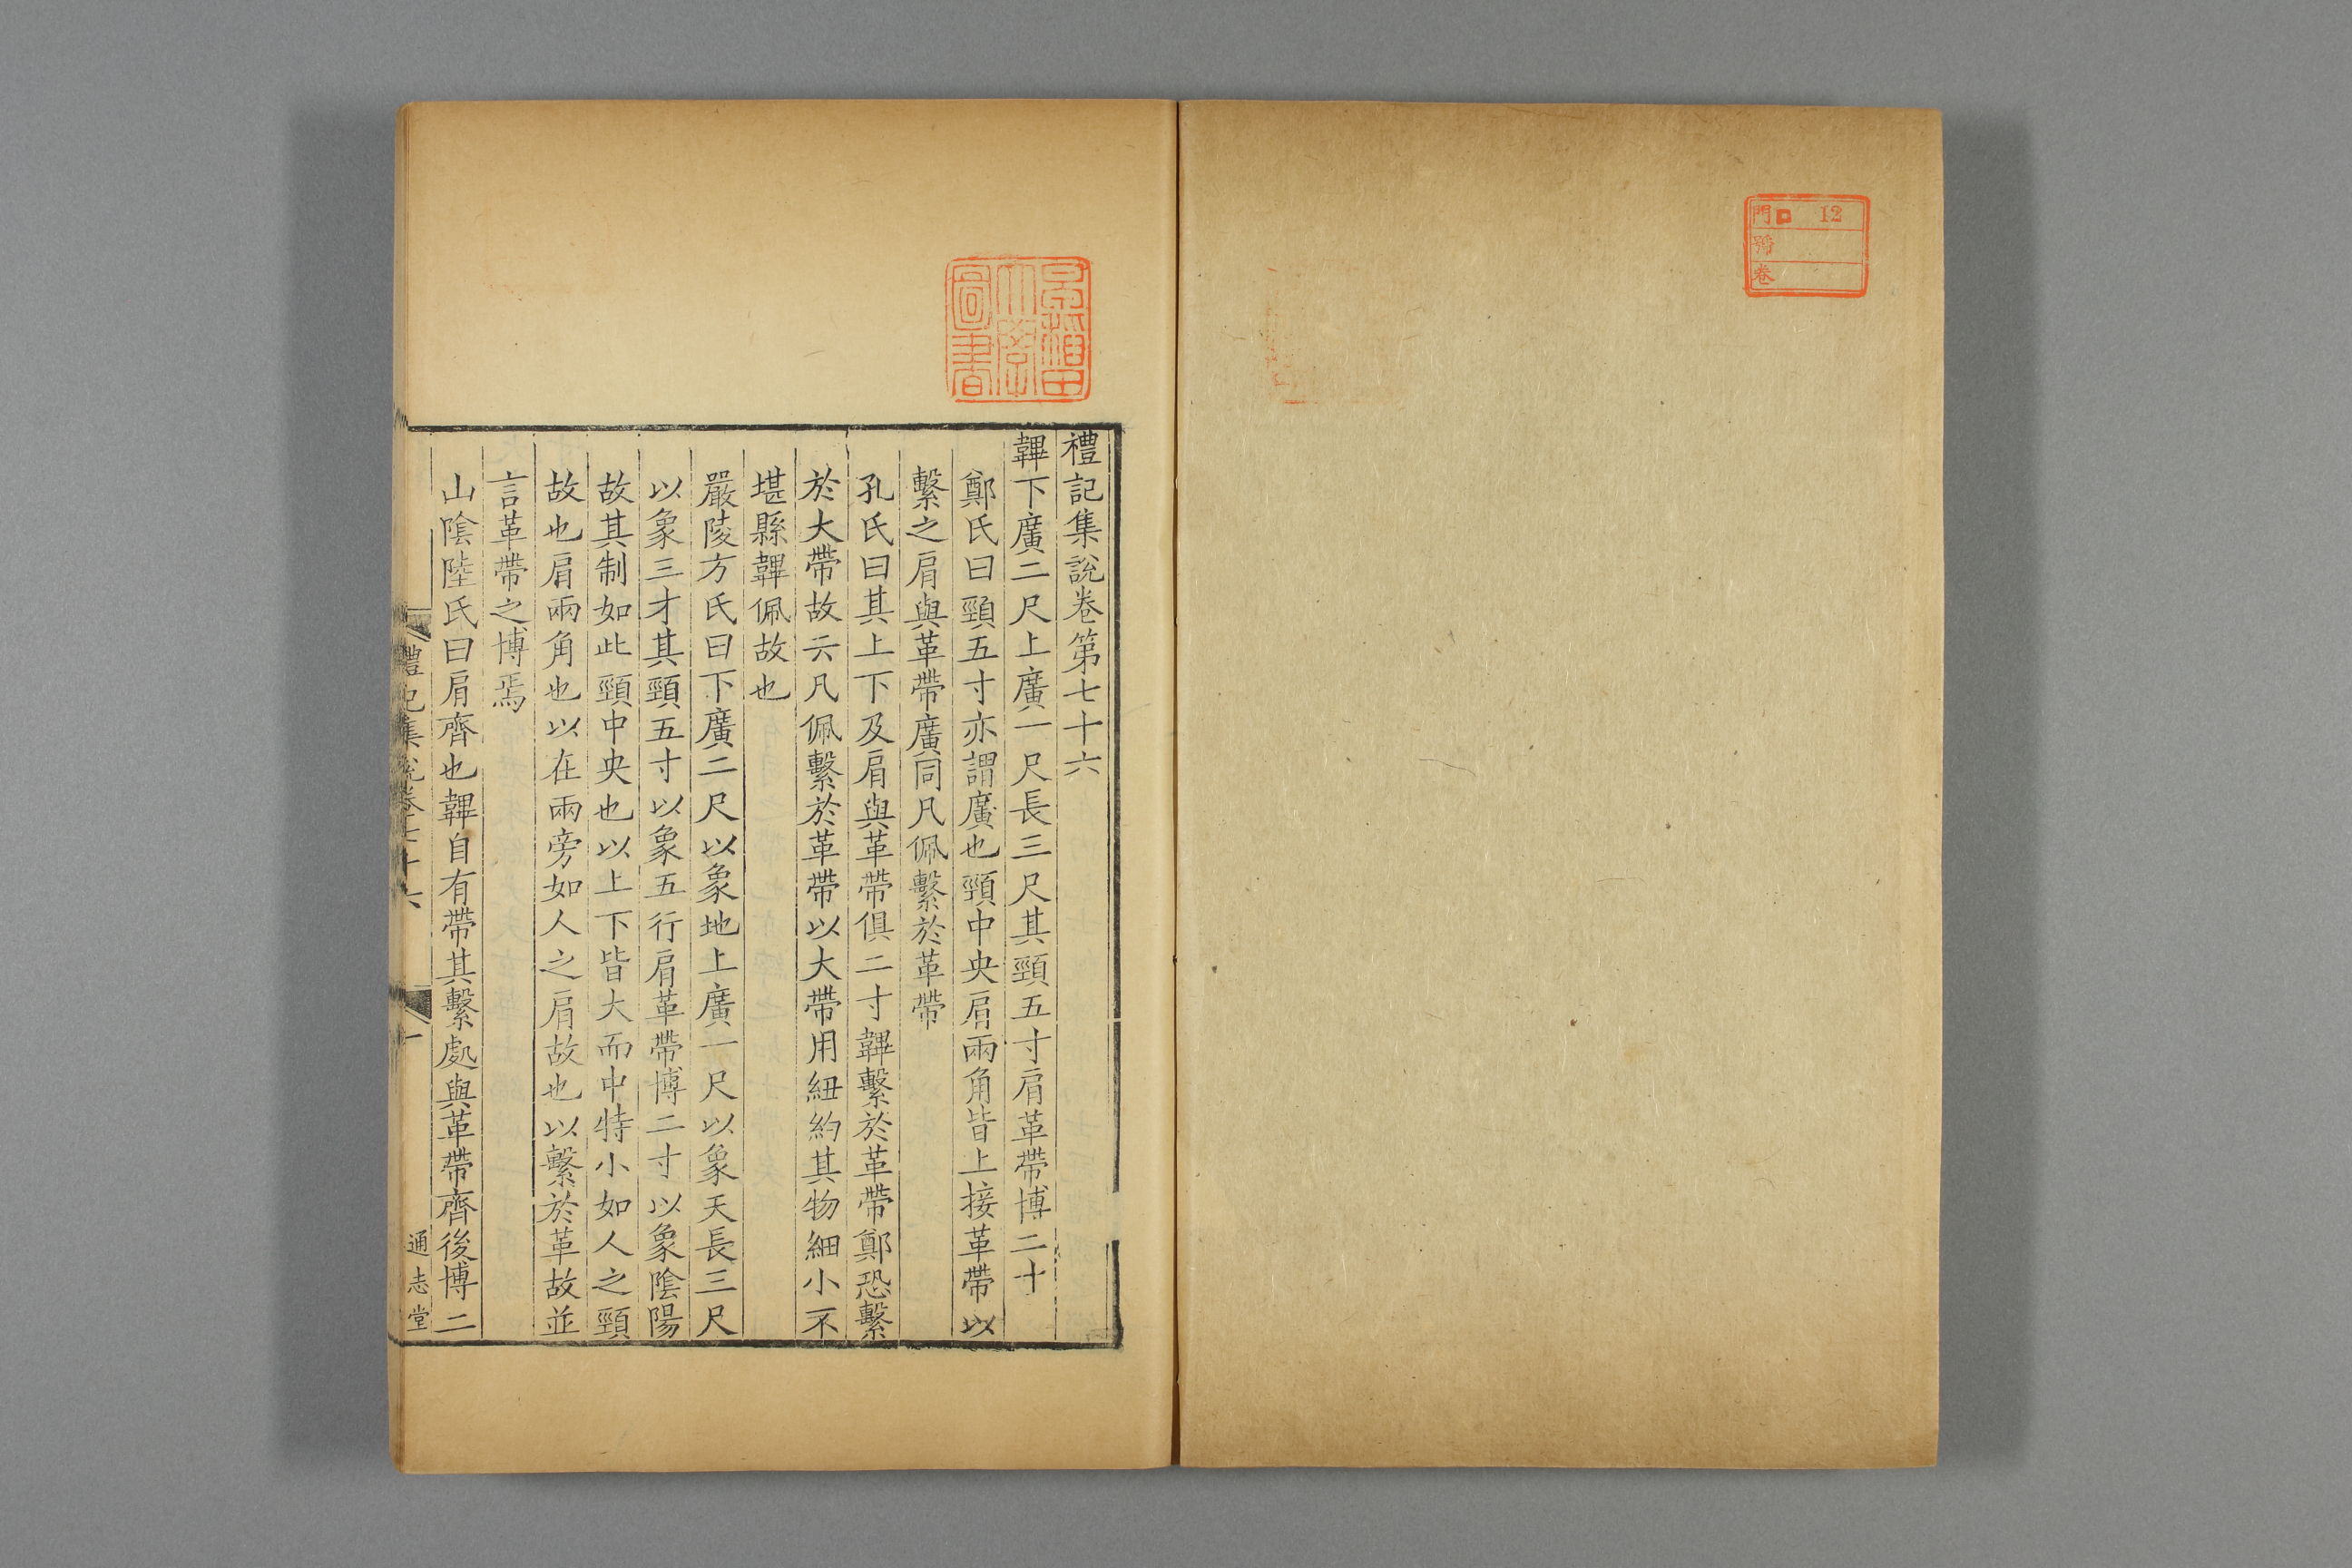 門ロ 12
號
卷
早稲田
大學
圖書
禮記集說卷第七十六
韠下廣二尺上廣一尺長三尺其頸五寸肩革帶博二十
鄭氏曰頸五寸亦謂廣也頸中央肩兩角皆上接革帶以
繫之肩與革帶廣同凡佩繫於革帶
孔氏曰其上下及肩與革帶俱二寸韠繫於革帶鄭恐繫
於大帶故云凡佩繫於革帶以大帶用紐約其物細小不
堪縣韠佩故也
嚴陵方氏曰下廣二尺以象地上廣一尺以象天長三尺
以象三才其頸五寸以象五行肩革帶博二寸以象陰陽
故其制如此頸中央也以上下皆大而中特小如人之頸
故也肩兩角也以在兩旁如人之肩故也以繫於革故並
言革帶之博焉
山陰陸氏曰肩齊也韠自有帶其繫處與革帶齊後博二
禮記集說卷七十六 一 通志堂